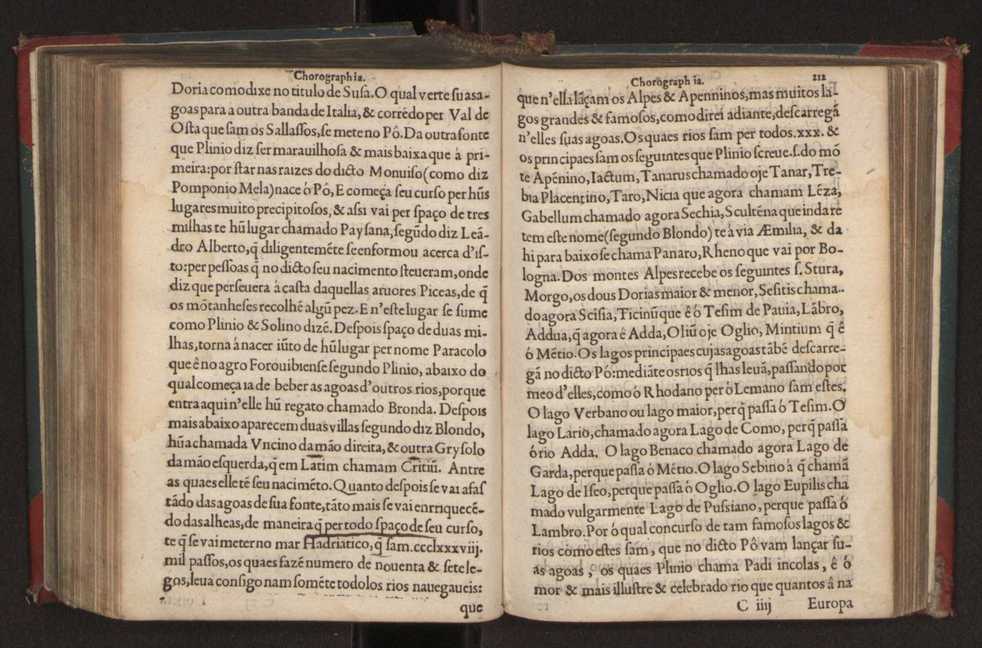 Chorographia.
Doria como dixe no titulo de Susa. O qual verte su as a-
goas para a outra banda de Italia, & corrẽdo per Val de
Osta que sam os Sallassos, se mete no Pô. Da outra fonte
que Plinio diz ser marauilhosa & mais baixa que à pri-
meira: por star nas raizes do dicto Monuiso (como diz
Pomponio Mela) nace ò Pô, E começa seu curso per hũs
lugares muito precipitosos, & assi vai per spaço de tres
milhas te hũ lugar chamado Paysana, segũdo diz Leã-
dro Alberto, q̃ diligentemẽte se enformou acerca d'is-
to: per pessoas q̃ no dicto seu nacimento steueram, onde
diz que perseuera à casta daquellas aruores Piceas, de q̃
os mõtanheses recolhẽ algũ pez. E n'este lugar se sume
como Plinio & Solino dizẽ. Despois spaço de duas mi-
lhas, torna à nacer iũto de hũ lugar per nome Paracolo
que ê no agro Forouibiense segundo Plinio, abaixo do
qual começa ia de beber as agoas d'outros rios, porque
entra aqui n'elle hũ regato chamado Bronda. Despois
mais abaixo aparecem duas villas segundo diz Blondo,
hũa chamada Vncino da mão direita, & outra Grysolo
da mão esquerda, q̃ em Latim chamam Critiũ. Antre
as quaes elle tẽ seu nacimẽto. Quanto despois se vai afas
tãdo das agoas de sua fonte, tãto mais se vai enrriquecẽ-
do das alheas, de maneira q̃ per todo spaço de seu curso,
te q̃ se vai meter no mar Hadriatico, q̃ sam. ccclxxxviij.
mil passos, os quaes fazẽ numero de nouenta & sete le-
gos, leua consigo nam somẽte todolos rios nauegaueis:
que
Chorographia. 212
que n'ella lãçam os Alpes & Apenninos, mas muitos la-
gos grandes & famosos, como direi adiante, descarregã
n'elles suas agoas. Os quaes rios sam per todos. xxx. &
os principaes sam os seguintes que Plinio screue. s. do mõ
te Apẽnino, Iactum, Tanarus chamado oje Tanar, Tre-
bia Placentino, Taro, Nicia que agora chamam Lẽza,
Gabellum chamado agora Sechia, Scultẽna que inda re
tem este nome (segundo Blondo) te à via Æmilia, & da
hi para baixo se chama Panaro, Rheno que vai por Bo-
logna. Dos montes Alpes recebe os seguintes s. Stura,
Morgo, os dous Dorias maior & menor, Sesitis chama-
do agora Seisia, Ticinũ que ê ò Tesim de Pauia, Lãbro,
Addua, q̃ agora ê Adda, Oliũ oje Oglio, Mintium q̃ ê
ò Mẽtio. Os lagos principaes cujas agoas tãbẽ descarre-
gã no dicto Pô: mediãte os rios q̃ lhas leuã, passando por
meo d'elles, como ò Rhodano per ò Lemano sam estes.
O lago Verbano ou lago maior, per q̃ passa ò Tesim. O
lago Lario, chamado agora Lago de Como, per q̃ passa
ò rio Adda. O lago Benaco chamado agora Lago de
Garda, per que passa ò Mẽtio. O lago Sebino à q̃ chamã
Lago de Iseo, per que passa ò Oglio. O lago Eupilis cha
mado vulgarmente Lago de Pussiano, per que passa ò
Lambro. Por ò qual concurso de tam famosos lagos &
rios como estes sam, que no dicto Pô vam lançar su-
as agoas, os quaes Plinio chama Padi incolas, ê ò
mor & mais illustre & celebrado rio que quantos â na
C iiij Europa